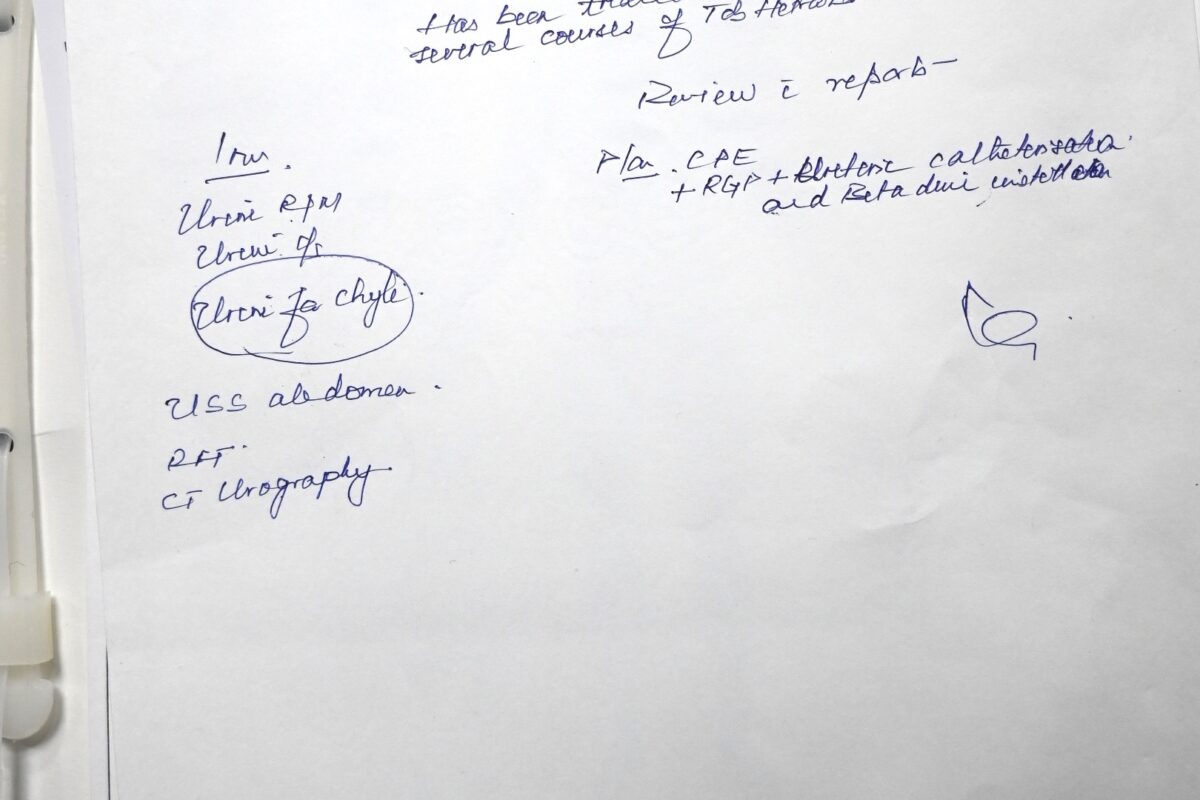 Has been
several courses of Tab Hetrazan
Review c̄ reports
Plan. CPE
+ RGP + Ureteric catheterisation
and Betadine instillation
Inv.
Urine R/M
Urine c/s
Urine for chyle.
USS abdomen.
RFT.
CT Urography.